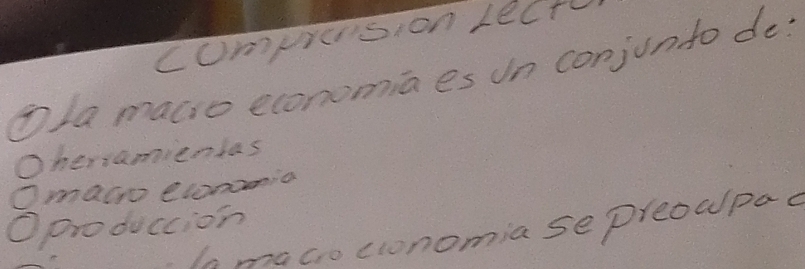 comprension
① La macro economia es un conjunto de:
O herramientas
O macro economia
O producción
la macro economia se preocupa